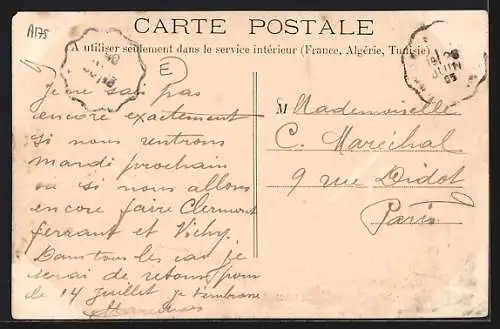 A175
CARTE POSTALE
A utiliser seulement dans le service intérieur (France, Algérie, Tunisie)
E
JUIN
Je ne sais pas
encore exactement
si nous rentrons
mardi prochain
ou si nous allons
encore faire Clermont
ferrant et Vichy.
Dans tous les cas je
serai de retour pour
le 14 Juillet je t'embrasse
M Mademoiselle
C. Maréchal
9 rue Didot
Paris